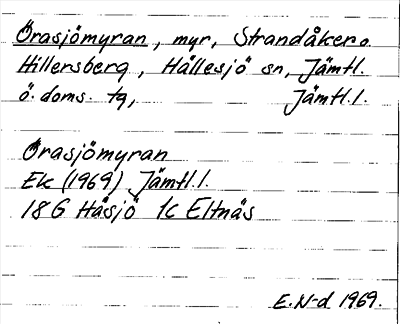 Örasjömyran, myr, Strandåker o.
Hillersberg, Hällesjö sn, Jämtl.
ö. doms. tg, Jämtl. l.
Örasjömyran
Ek (1969) Jämtl. l.
18 G Håsjö 1c Eltnäs
E. N-d 1969.